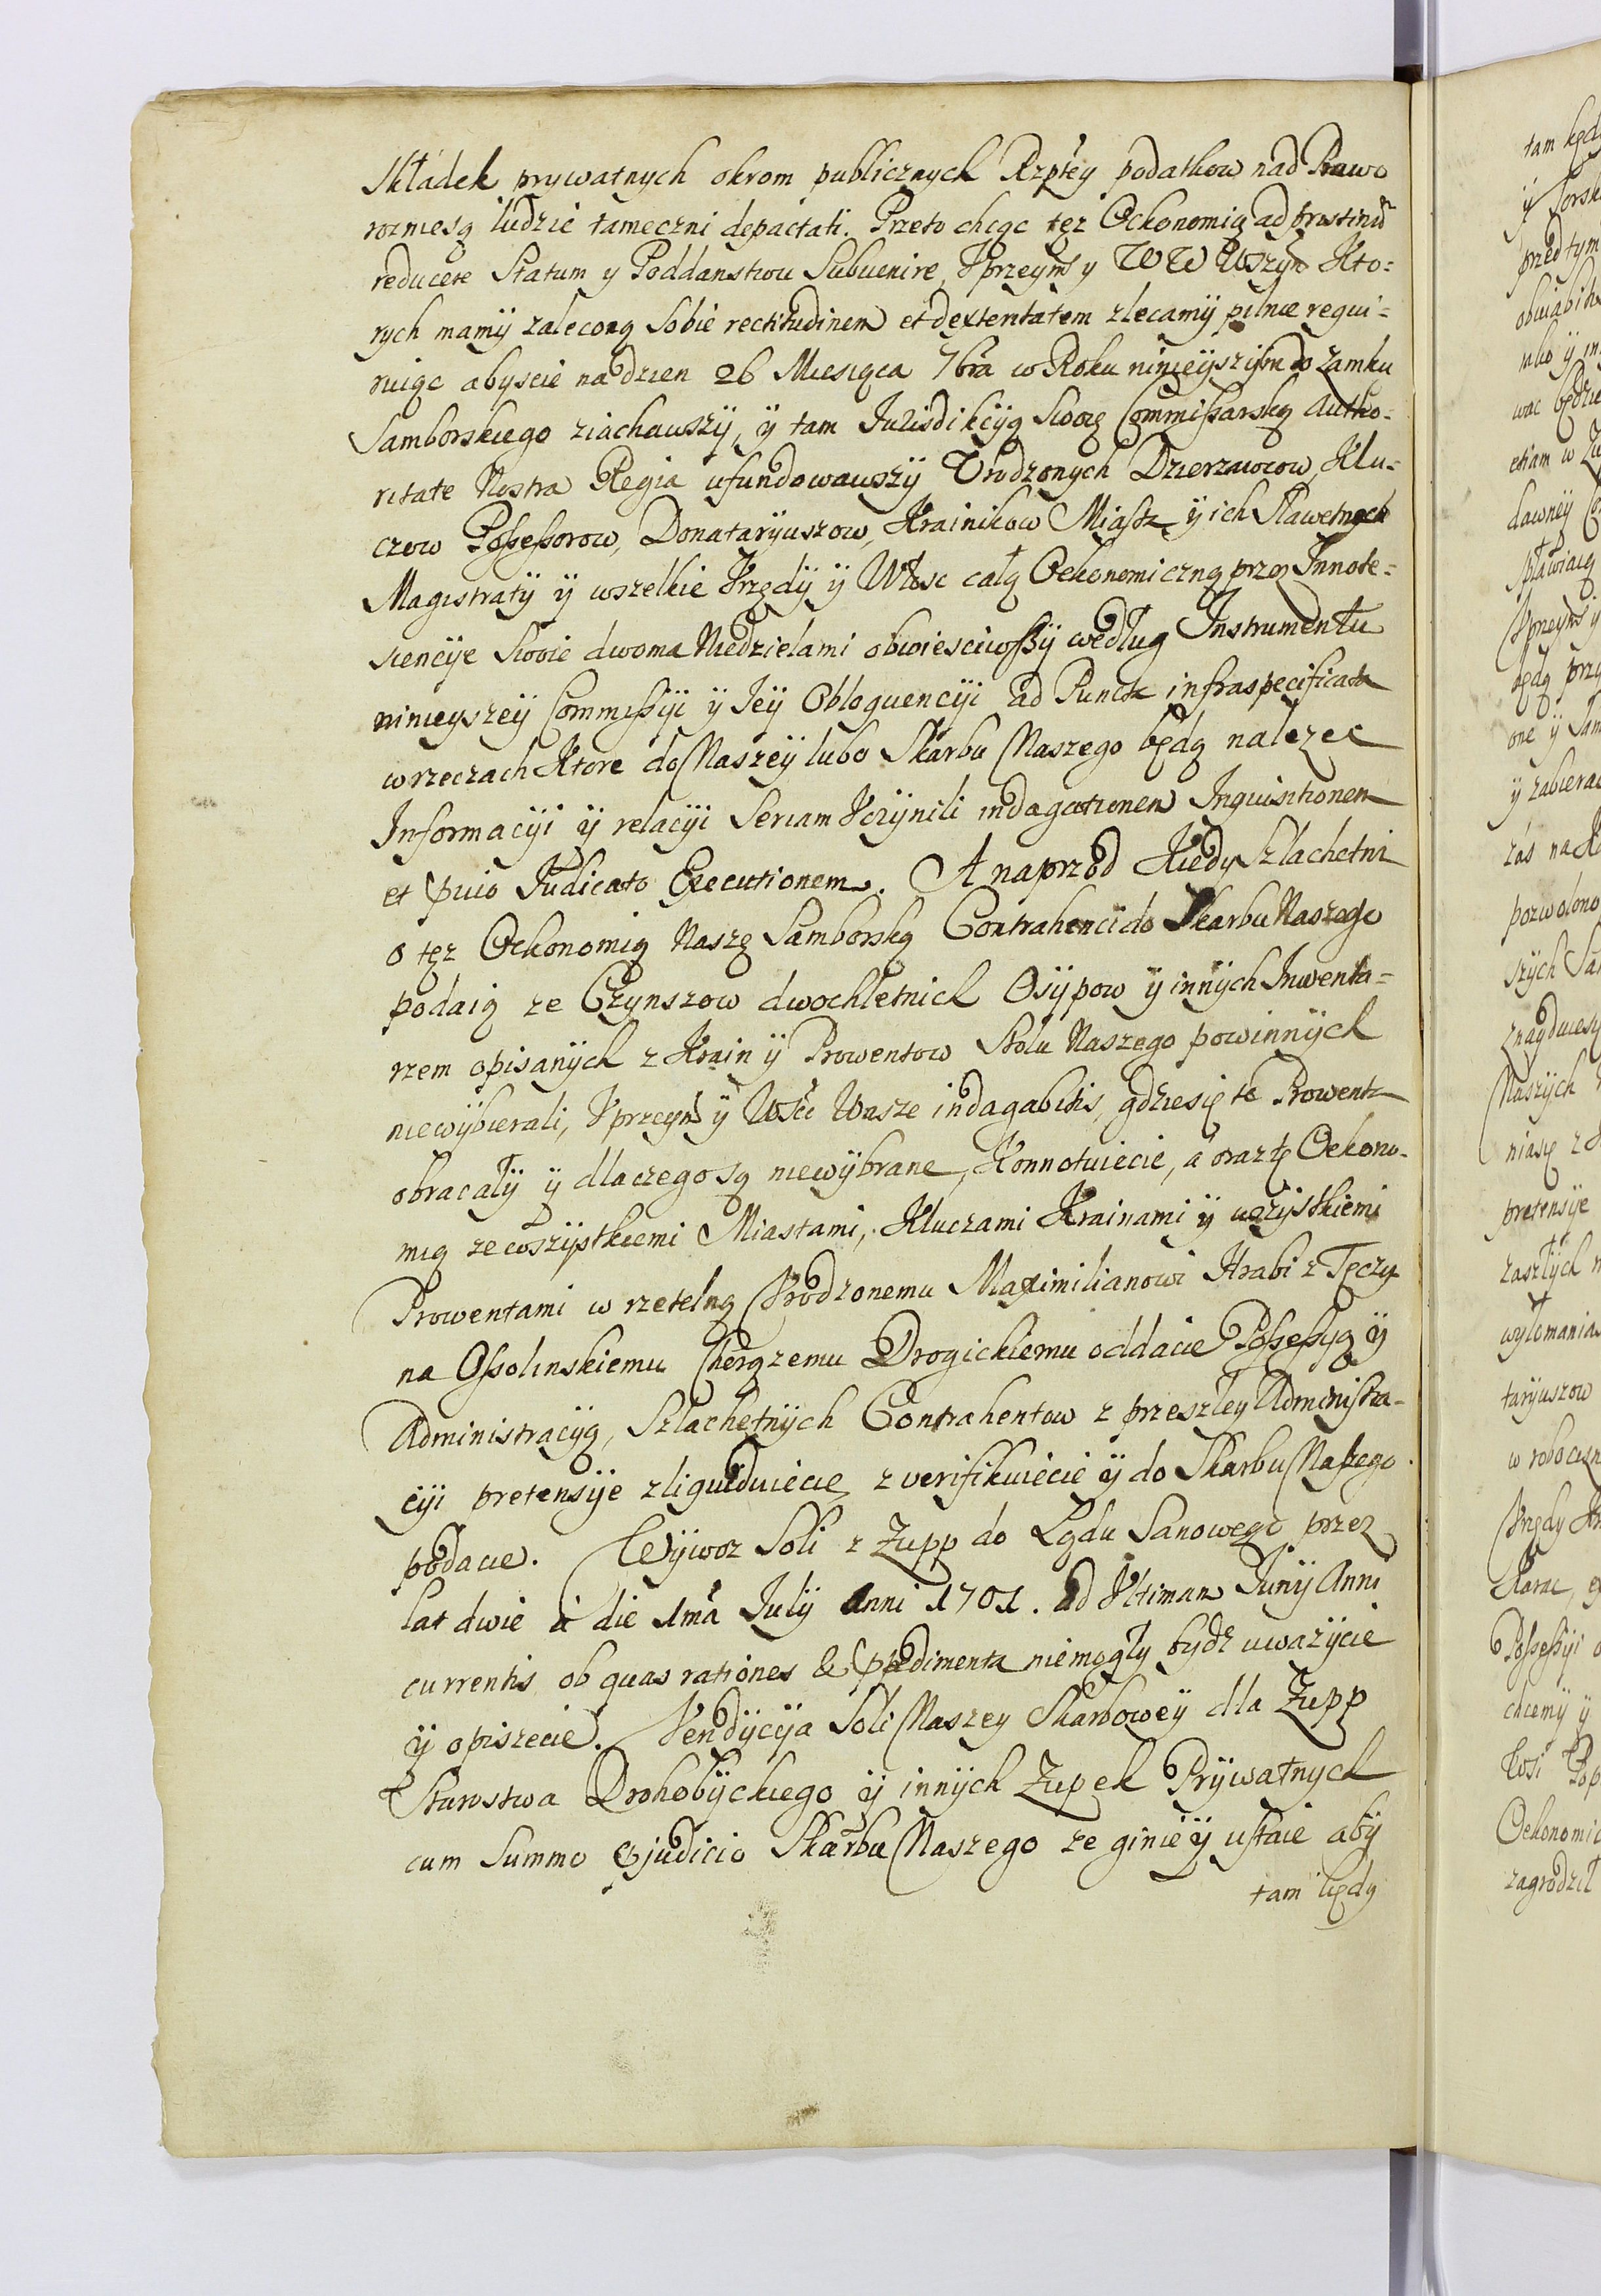 Składek prywatnych okrom publicznych Rzptey podatkow nad Prawo
rozniesą ludzie tameczni depactati. Przeto chcąc tęz Oekonomią ad pristinũ
reducere Statum y Poddanstwu Subuenire, Vprzeym y WW Wszyn Kto=
rych mamÿ zaleconą Sobie rectitudinem et dexteritatem zlecamÿ pilnie requi=
ruiąc abyscie na dzien 26 Miesiąca 7bra w Roku ninieÿszÿm do Zamku
Samborskiego ziachawszÿ, ÿ tam Jurisdikcÿą Swoię Commißarską Autho=
ritate Nostra Regia ufundowawszÿ Vrodzonych Dzierzawcow, Klu=
czow Poßeßorow, Donatarÿuszow, Krainikow Miast ÿ ich Sławetnych
Magistratÿ ÿ wszelkie Vrzędÿ ÿ Włosc całą Oekonomiczną przez Innote=
scencÿe Swoie dwoma Niedzielami obwiesciwszÿ według Instrumentu
ninieyszeÿ Commißÿi ÿ Jeÿ Obloquencÿi ad Puncta infraspecificata
w rzeczach Ktore do Naszeÿ lubo Skarbu Naszego będą nalezec
Informacÿi ÿ relacÿi Seriam Vczÿnili indagationem Inquisitionem
et prvio Judicato Executionem. A naprzod Kiedy Szlachetni
o tęz Oekonomią Naszę Samborską Contrahenci do Skarbu Naszego
podaią ze Czynszow dwochletnich Osÿpow ÿ innÿch Inwenta=
rzem opisanÿch z Krain ÿ Prowentow Stołu Naszego powinnÿch
niewÿbierali, Vprzeym ÿ Wści Wasze indagabitis, gdzie się te Prowenta
obracałÿ ÿ dlaczego są niewÿbrane, Konnotuiecie, a oraz tę Oekono=
mią ze wszÿstkiemi Miastami, Kluczami Krainami ÿ wszÿstkiemi
Prowentami w rzetelną Vrodzonemu Maximilianowi Hrabi z Tęczy
na Oßolinskiemu Chorązemu Drogickiemu oddacie Poßeßyą ÿ
Administracÿą, Szlachetnÿch Contrahentow z przeszłey Administra=
cÿi pretensÿe zliquiduiecie, zverifikuiecie ÿ do Skarbu Naszego
podacie. Wÿwoz Soli z Zupp do Lądu Sanowego przez
lat dwie à die 1ma Julÿ Anni 1701. ad Vltiman Junÿ Anni
currentis ob quas rationes & Ppedimenta niemogłÿ bydz uwazÿcie
ÿ opiszecie. Vendÿcÿa Soli Naszey Skarboweÿ dla Zupp
Starostwa Drohobÿckiego ÿ innÿch Zupek Prÿwatnÿch
cum Summo Pjudicio Skarbu Naszego ze ginie ÿ ustaie abÿ
tam kędy